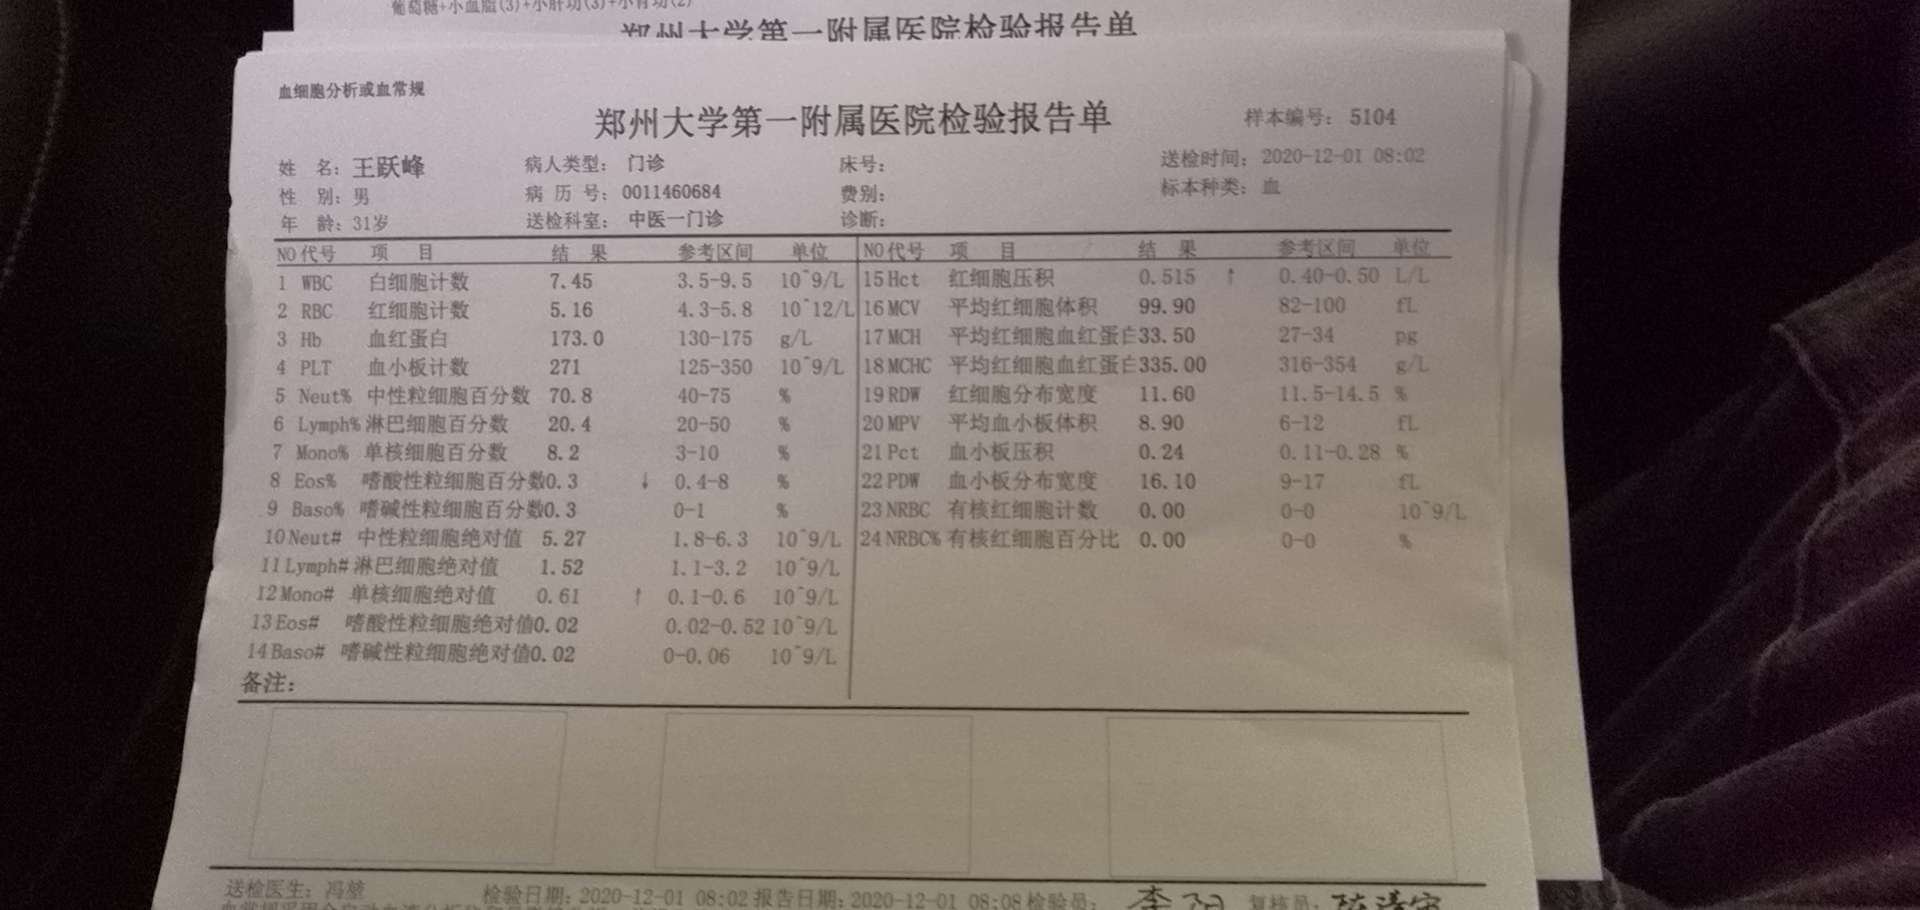 葡萄糖+小血脂(3)+小肝功(3)+小肾功(2)
郑州大学第一附属医院检验报告单
血细胞分析或血常规
郑州大学第一附属医院检验报告单
样本编号: 5104
姓 名: 王跃峰 病人类型: 门诊 床号: 送检时间: 2020-12-01 08:02
性 别: 男 病 历 号: 0011460684 费别: 标本种类: 血
年 龄: 31岁 送检科室: 中医一门诊 诊断:
NO 代号 项 目 结 果 参考区间 单位 NO 代号 项 目 结 果 参考区间 单位
1 WBC 白细胞计数 7.45 3.5-9.5 10^9/L 15 Hct 红细胞压积 0.515 ↑ 0.40-0.50 L/L
2 RBC 红细胞计数 5.16 4.3-5.8 10^12/L 16 MCV 平均红细胞体积 99.90 82-100 fL
3 Hb 血红蛋白 173.0 130-175 g/L 17 MCH 平均红细胞血红蛋白 33.50 27-34 pg
4 PLT 血小板计数 271 125-350 10^9/L 18 MCHC 平均红细胞血红蛋白 335.00 316-354 g/L
5 Neut% 中性粒细胞百分数 70.8 40-75 % 19 RDW 红细胞分布宽度 11.60 11.5-14.5 %
6 Lymph% 淋巴细胞百分数 20.4 20-50 % 20 MPV 平均血小板体积 8.90 6-12 fL
7 Mono% 单核细胞百分数 8.2 3-10 % 21 Pct 血小板压积 0.24 0.11-0.28 %
8 Eos% 嗜酸性粒细胞百分数 0.3 ↓ 0.4-8 % 22 PDW 血小板分布宽度 16.10 9-17 fL
9 Baso% 嗜碱性粒细胞百分数 0.3 0-1 % 23 NRBC 有核红细胞计数 0.00 0-0 10^9/L
10 Neut# 中性粒细胞绝对值 5.27 1.8-6.3 10^9/L 24 NRBC% 有核红细胞百分比 0.00 0-0 %
11 Lymph# 淋巴细胞绝对值 1.52 1.1-3.2 10^9/L
12 Mono# 单核细胞绝对值 0.61 ↑ 0.1-0.6 10^9/L
13 Eos# 嗜酸性粒细胞绝对值 0.02 0.02-0.52 10^9/L
14 Baso# 嗜碱性粒细胞绝对值 0.02 0-0.06 10^9/L
备注:
送检医生: 冯堃 检验日期: 2020-12-01 08:02 报告日期: 2020-12-01 08:08 检验员: 李阳 复核员: